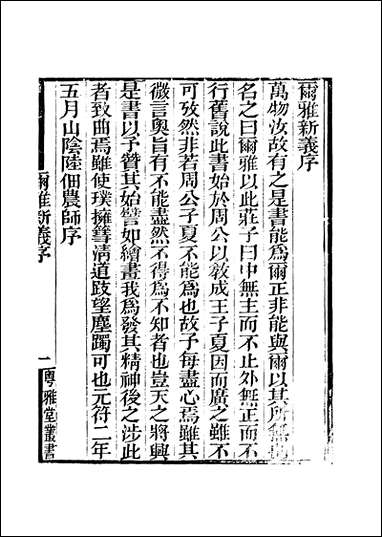 爾雅新義序
萬物汝故有之是書能爲爾正非能與爾以其所無也
名之曰爾雅以此莊子曰中無主而不止外無正而不
行舊說此書始於周公以敎成王子夏因而廣之雖不
可攷然非若周公子夏不能爲也故予每盡心焉雖其
微言奧旨有不能盡然不得爲不知者也豈天之將興
是書以予贊其始譬如繪畫我爲發其精神後之涉此
者致曲焉雖使璞擁篲清道跂望塵躅可也元符二年
五月山陰陸佃農師序
爾雅新義序
一
粵雅堂叢書